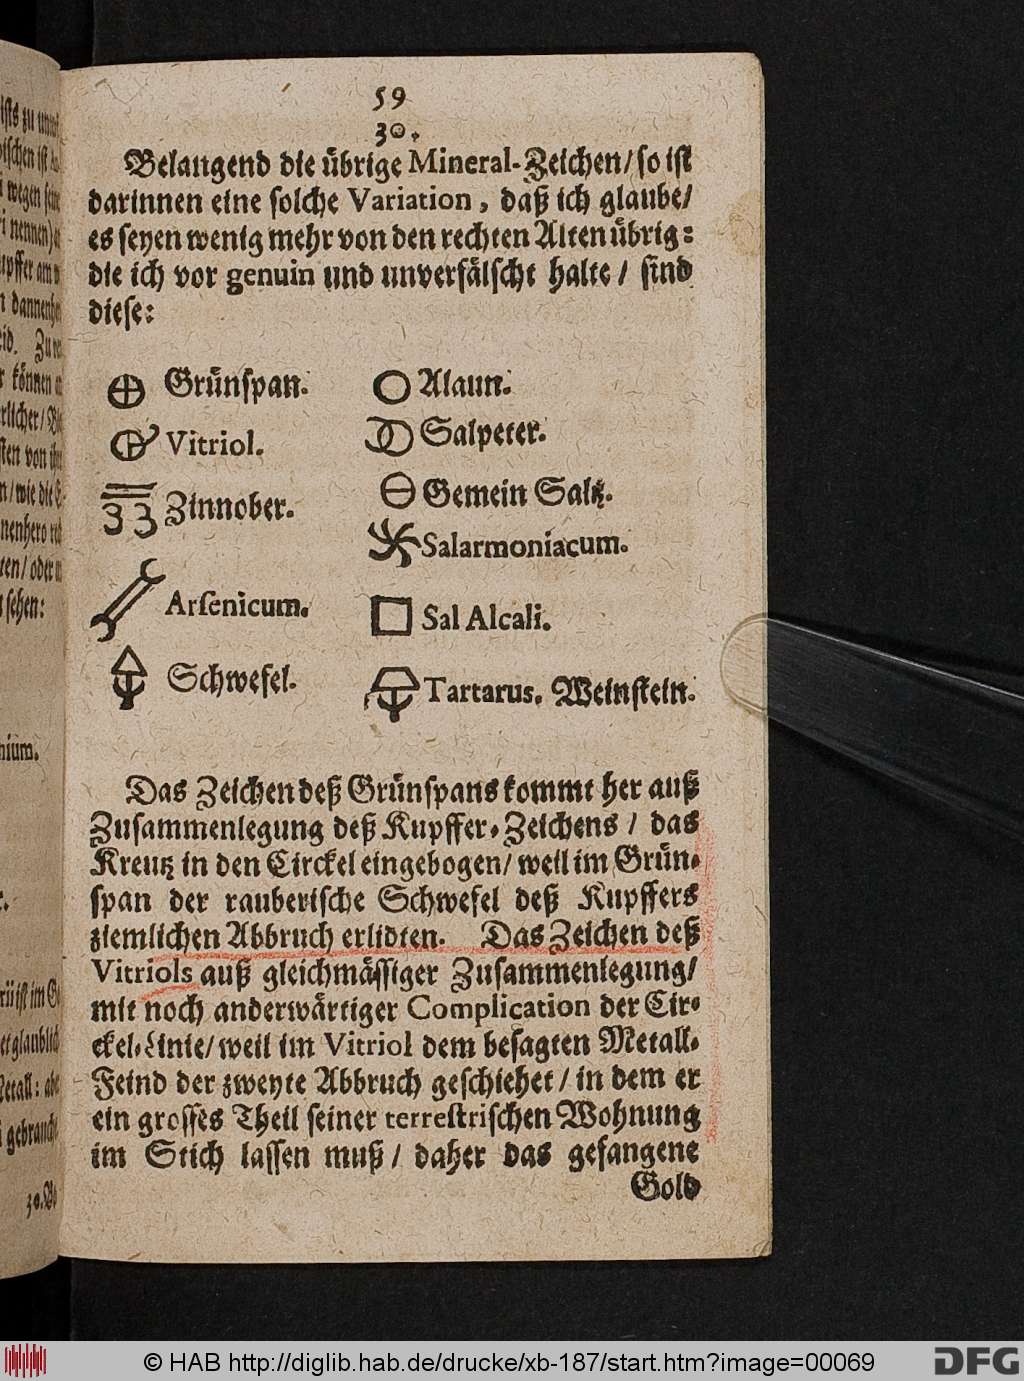 59
30.
Belangend die übrige Mineral-Zeichen/ so ist
darinnen eine solche Variation, daß ich glaube/
es seyen wenig mehr von den rechten Alten übrig:
die ich vor genuin und unverfälscht halte / sind
diese:
Grünspan.
Vitriol.
Zinnober.
Arsenicum.
Schwefel.
Alaun.
Salpeter.
Gemein Saltz.
Salarmoniacum.
Sal Alcali.
Tartarus. Weinstein.
Das Zeichen deß Grünspans kommt her auß
Zusammenlegung deß Kupffer-Zeichens / das
Kreutz in den Circkel eingebogen/ weil im Grün-
span der rauberische Schwefel deß Kupffers
ziemlichen Abbruch erlidten. Das Zeichen deß
Vitriols auß gleichmässiger Zusammenlegung/
mit noch anderwärtiger Complication der Cir-
ckel-Linie/ weil im Vitriol dem besagten Metall-
Feind der zweyte Abbruch geschiehet / in dem er
ein grosses Theil seiner terrestrischen Wohnung
im Stich lassen muß / daher das gefangene
Gold
ists zu
wegen
nennen)
dannenhe
können
erlicher/
sten von
n/ wie die
nenhero
ten/ oder
sehen:
nium.
ist im
glaublich
Metall:
gebrauch
30.
© HAB http://diglib.hab.de/drucke/xb-187/start.htm?image=00069
DFG